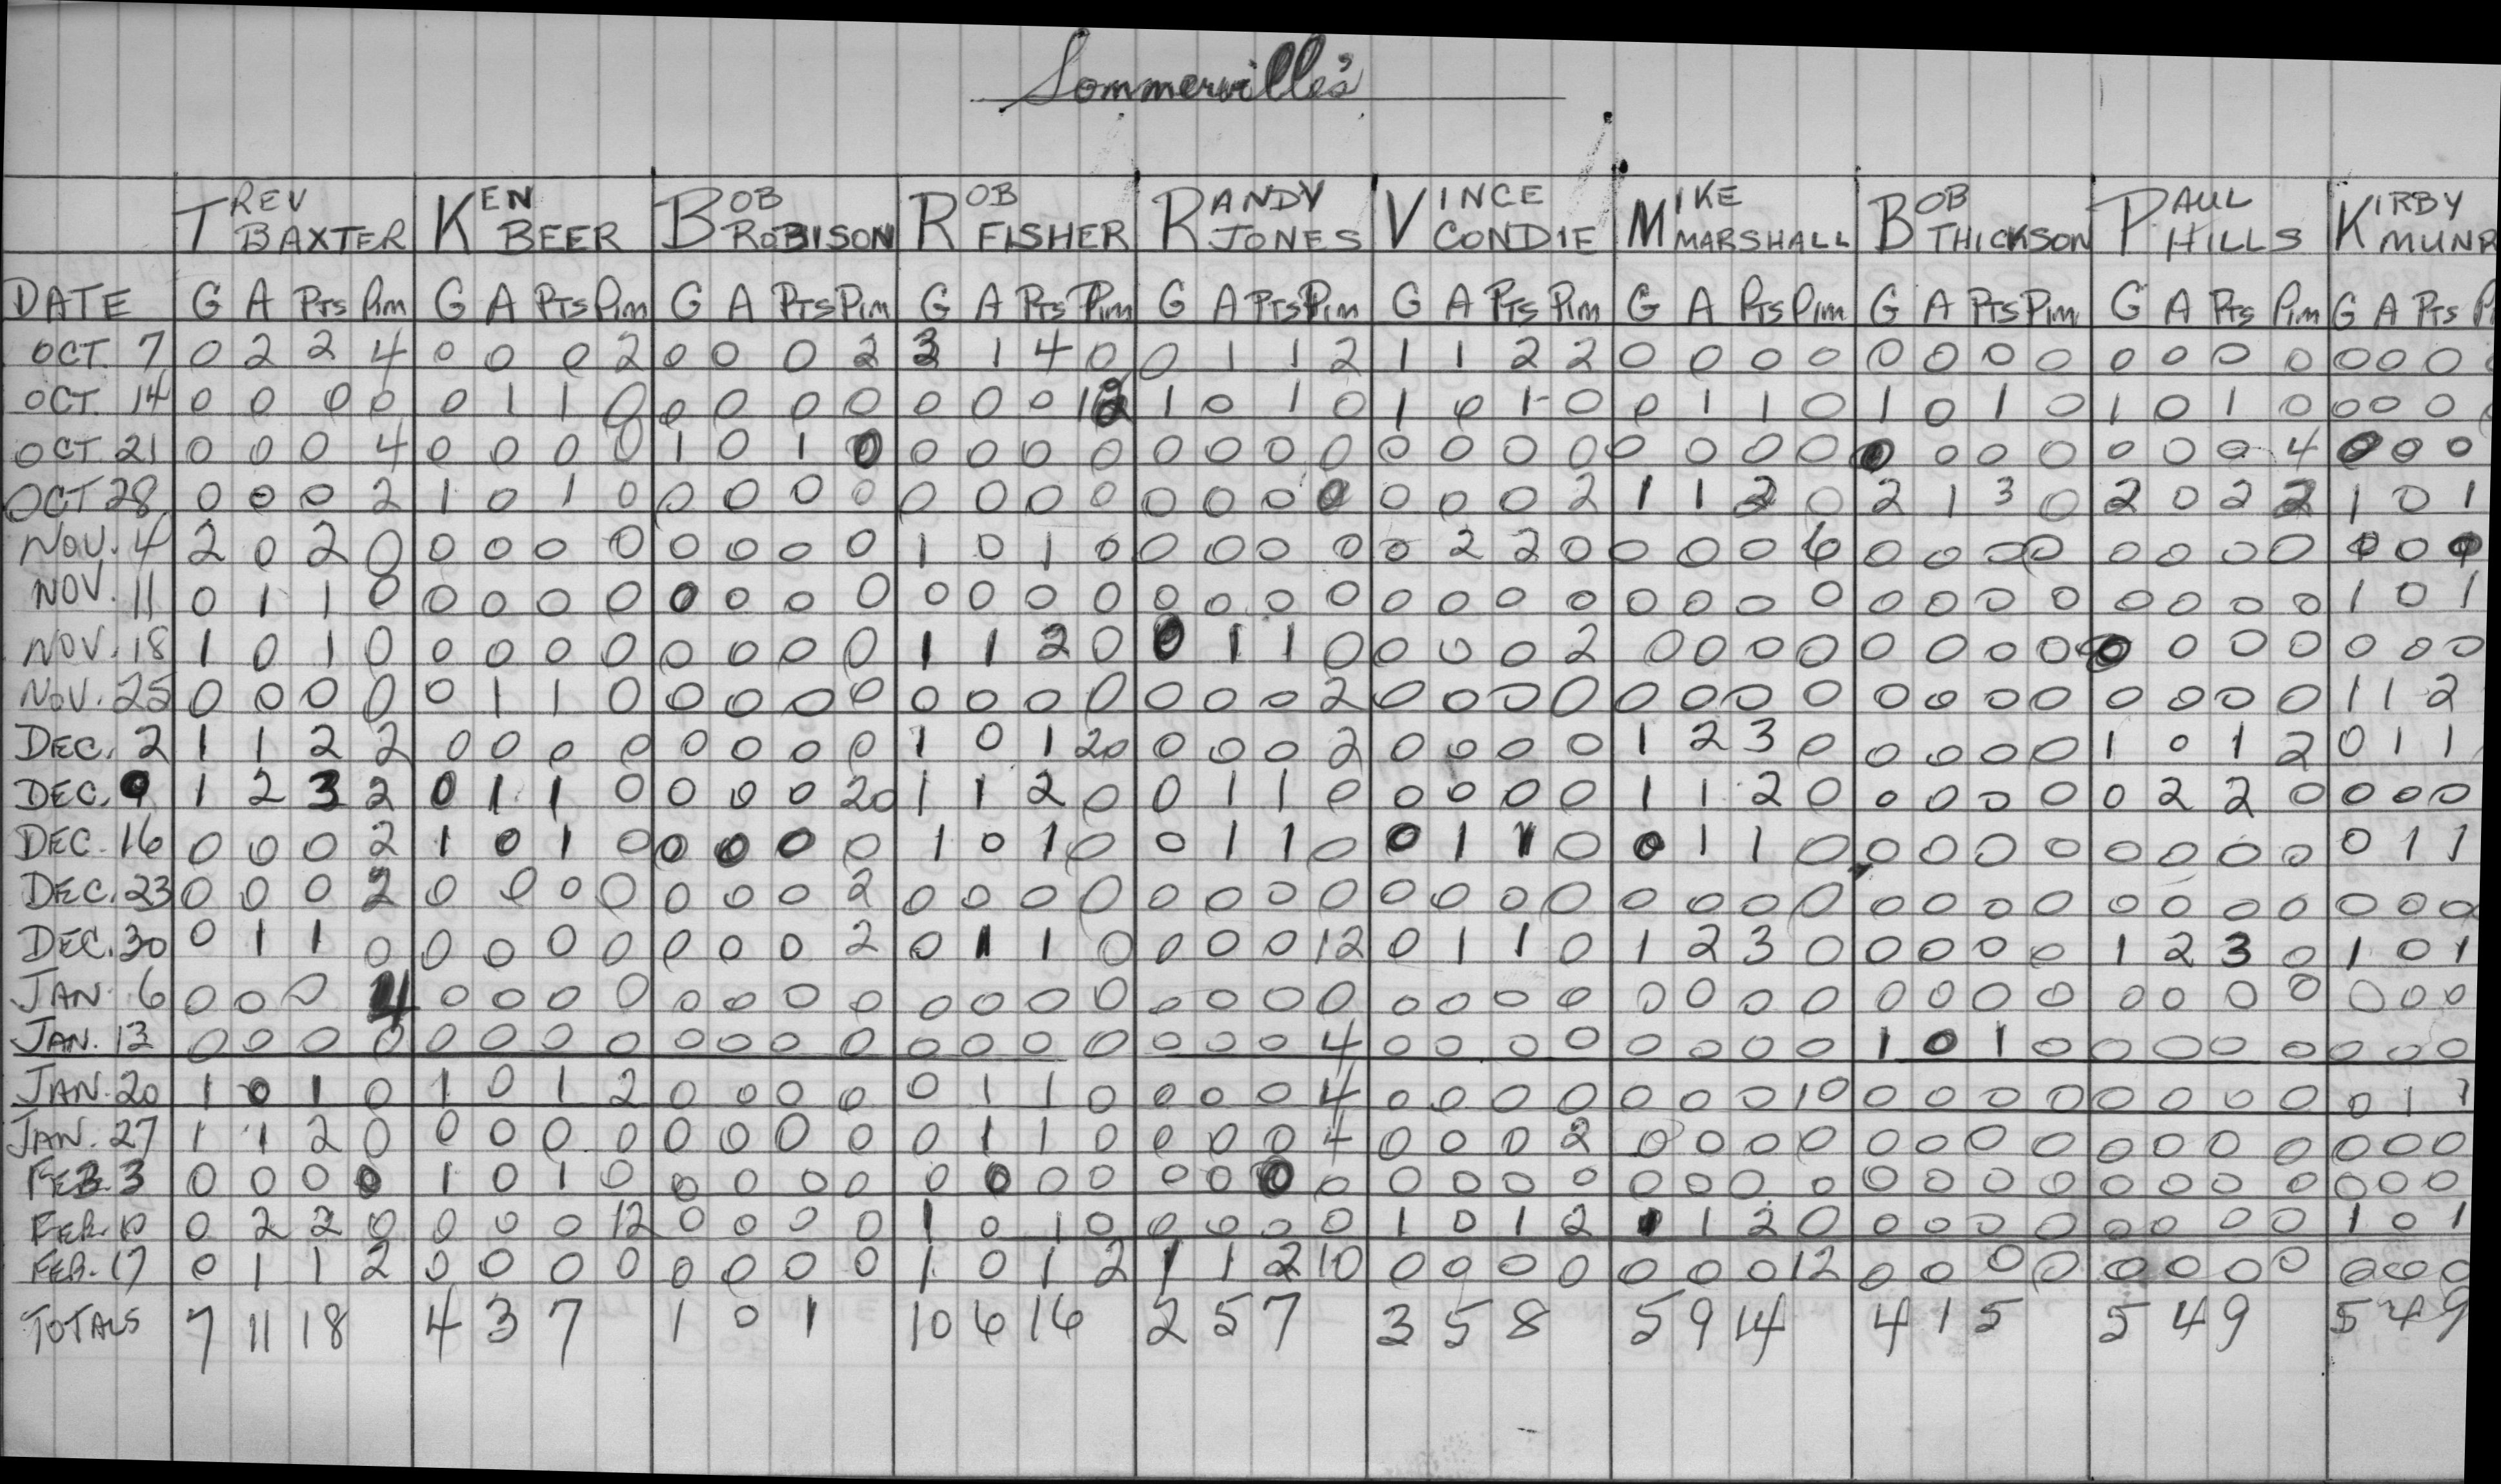 Sommerville's
TREV BAXTER KEN BEER BOB ROBISON ROB FISHER RANDY JONES VINCE CONDIE MIKE MARSHALL BOB THICKSON PAUL HILLS KIRBY MUNR
DATE G A Pts Pim G A Pts Pim G A Pts Pim G A Pts Pim G A Pts Pim G A Pts Pim G A Pts Pim G A Pts Pim G A Pts Pim G A Pts P
OCT. 7 0 2 2 4 0 0 0 2 0 0 0 2 3 1 4 0 0 1 1 2 1 1 2 2 0 0 0 0 0 0 0 0 0 0 0 0 0 0 0
OCT. 14 0 0 0 0 0 1 1 0 0 0 0 0 0 0 0 12 1 0 1 0 1 0 1 0 0 1 1 0 1 0 1 0 1 0 1 0 0 0 0
OCT. 21 0 0 0 4 0 0 0 0 1 0 1 0 0 0 0 0 0 0 0 0 0 0 0 0 0 0 0 0 0 0 0 0 0 0 0 4 0 0 0
OCT 28 0 0 0 2 1 0 1 0 0 0 0 0 0 0 0 0 0 0 0 0 0 0 0 2 1 1 2 0 2 1 3 0 2 0 2 2 1 0 1
NOV. 4 2 0 2 0 0 0 0 0 0 0 0 0 1 0 1 0 0 0 0 0 0 2 2 0 0 0 0 6 0 0 0 0 0 0 0 0 0 0 0
NOV. 11 0 1 1 0 0 0 0 0 0 0 0 0 0 0 0 0 0 0 0 0 0 0 0 0 0 0 0 0 0 0 0 0 0 0 0 0 1 0 1
NOV. 18 1 0 1 0 0 0 0 0 0 0 0 0 1 1 2 0 0 1 1 0 0 0 0 2 0 0 0 0 0 0 0 0 0 0 0 0 0 0 0
NOV. 25 0 0 0 0 0 1 1 0 0 0 0 0 0 0 0 0 0 0 0 2 0 0 0 0 0 0 0 0 0 0 0 0 0 0 0 0 1 1 2
DEC. 2 1 1 2 2 0 0 0 0 0 0 0 0 1 0 1 20 0 0 0 2 0 0 0 0 1 2 3 0 0 0 0 0 1 0 1 2 0 1 1
DEC. 9 1 2 3 2 0 1 1 0 0 0 0 20 1 1 2 0 0 1 1 0 0 0 0 0 1 1 2 0 0 0 0 0 0 2 2 0 0 0 0
DEC. 16 0 0 0 2 1 0 1 0 0 0 0 0 1 0 1 0 0 1 1 0 0 1 1 0 0 1 1 0 0 0 0 0 0 0 0 0 0 1 1
DEC. 23 0 0 0 2 0 0 0 0 0 0 0 2 0 0 0 0 0 0 0 0 0 0 0 0 0 0 0 0 0 0 0 0 0 0 0 0 0 0 0
DEC. 30 0 1 1 0 0 0 0 0 0 0 0 2 0 1 1 0 0 0 0 12 0 1 1 0 1 2 3 0 0 0 0 0 1 2 3 0 1 0 1
JAN. 6 0 0 0 4 0 0 0 0 0 0 0 0 0 0 0 0 0 0 0 0 0 0 0 0 0 0 0 0 0 0 0 0 0 0 0 0 0 0 0
JAN. 13 0 0 0 0 0 0 0 0 0 0 0 0 0 0 0 0 0 0 0 4 0 0 0 0 0 0 0 0 1 0 1 0 0 0 0 0 0 0 0
JAN. 20 1 0 1 0 1 0 1 2 0 0 0 0 0 1 1 0 0 0 0 4 0 0 0 0 0 0 0 10 0 0 0 0 0 0 0 0 0 1 1
JAN. 27 1 1 2 0 0 0 0 0 0 0 0 0 0 1 1 0 0 0 0 4 0 0 0 2 0 0 0 0 0 0 0 0 0 0 0 0 0 0 0
FEB 3 0 0 0 0 1 0 1 0 0 0 0 0 0 0 0 0 0 0 0 0 0 0 0 0 0 0 0 0 0 0 0 0 0 0 0 0 0 0 0
FEB. 10 0 2 2 0 0 0 0 12 0 0 0 0 1 0 1 0 0 0 0 0 1 0 1 2 1 1 2 0 0 0 0 0 0 0 0 0 1 0 1
FEB. 17 0 1 1 2 0 0 0 0 0 0 0 0 1 0 1 2 1 1 2 10 0 0 0 0 0 0 0 12 0 0 0 0 0 0 0 0 0 0 0
TOTALS 7 11 18 4 3 7 1 0 1 10 6 16 2 5 7 3 5 8 5 9 14 4 1 5 5 4 9 5 4 9